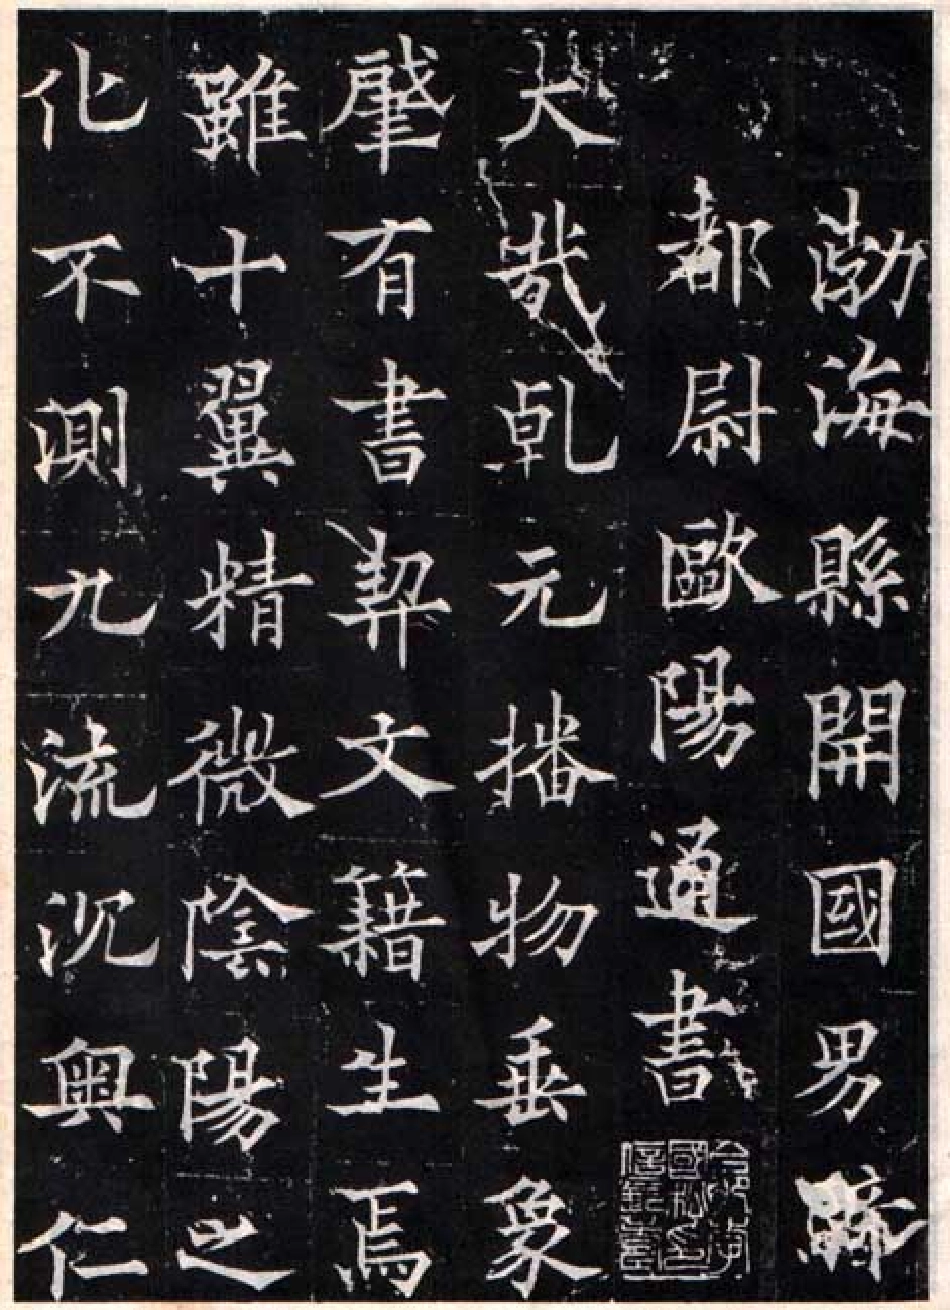 渤海縣開國男騎
都尉歐陽通書
大哉乾元播物垂象
肇有書契文籍生焉
雖十翼精微陰陽之
化不測九流沉奧仁